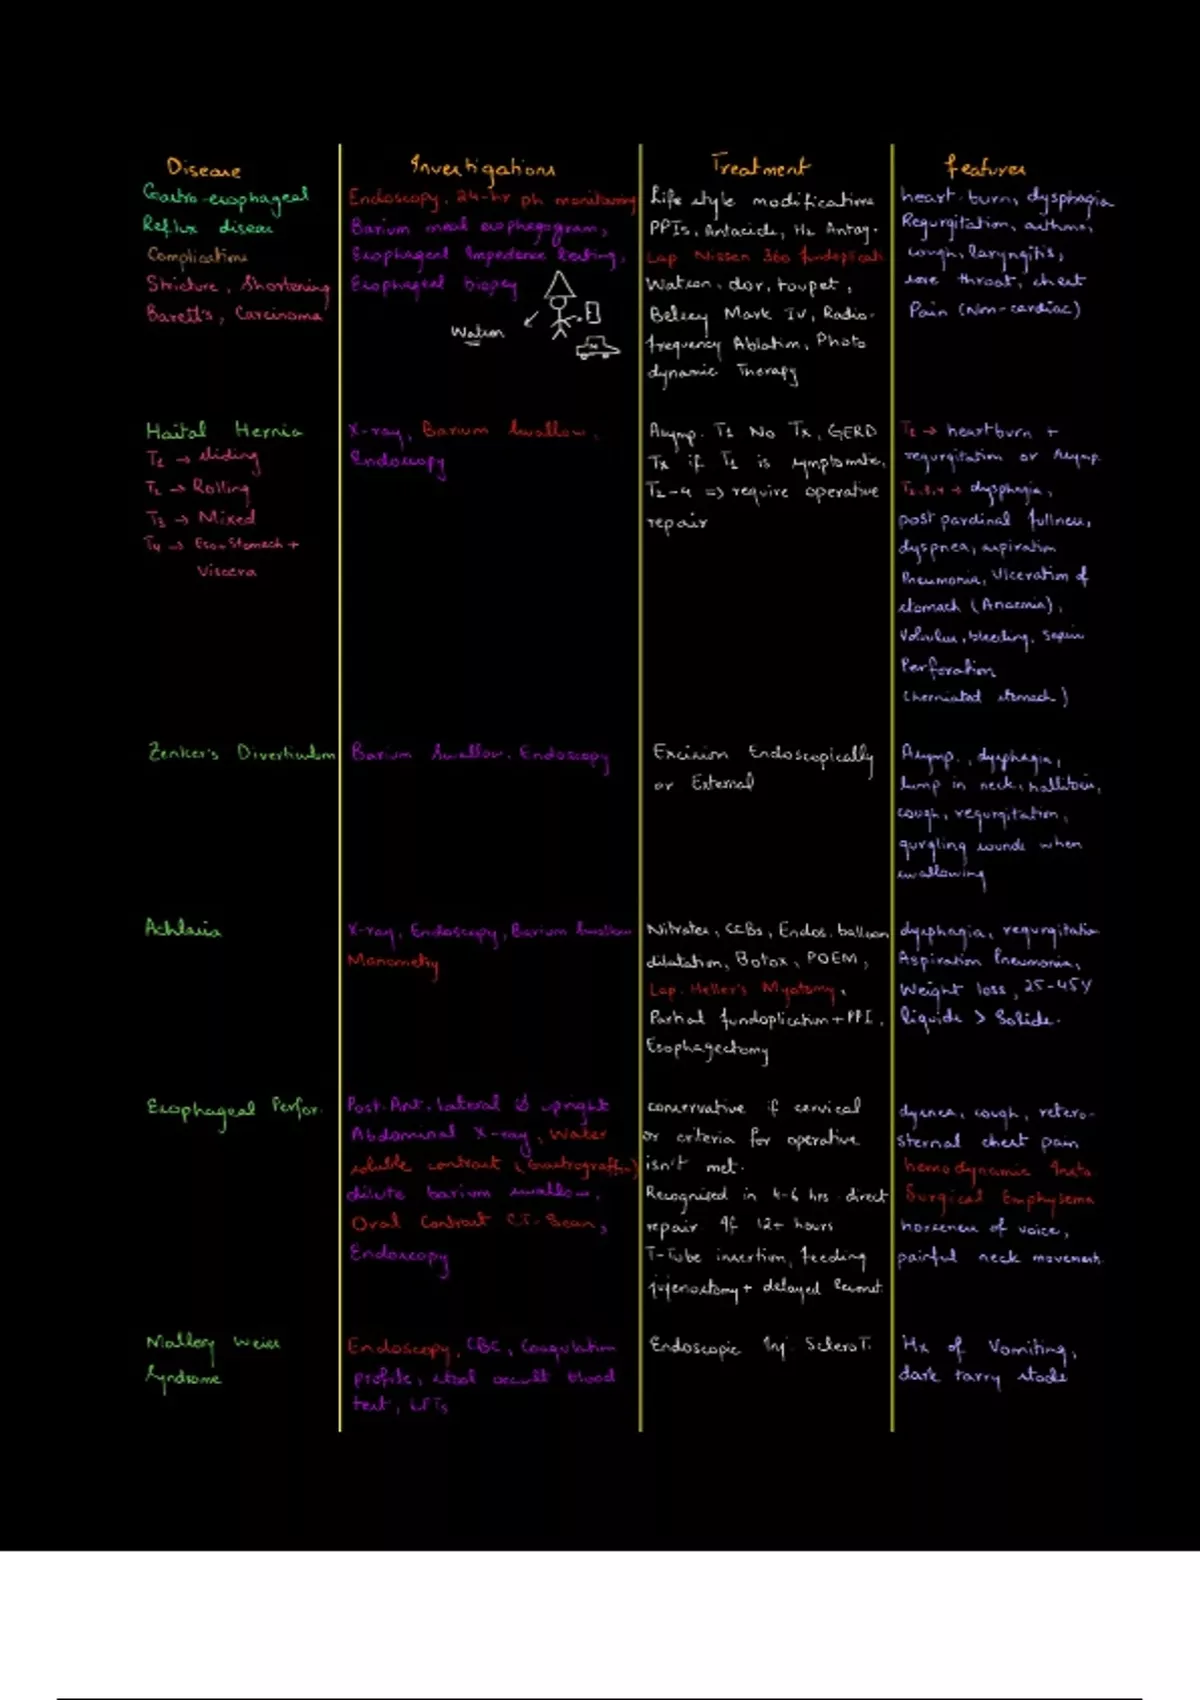 Disease
Gastro-esophageal
Reflux disease
Complications
Stricture, Shortening
Barett's, Carcinoma
Investigations
Endoscopy, 24-hr ph monitoring
Barium meal esophagogram,
Esophageal Impedence testing,
Esophageal biopsy
Watson
Treatment
Life style modifications
PPIs, Antacids, H2 Antag.
Lap Nissen 360 fundoplicati
Watson, dor, toupet,
Belsey Mark IV, Radio-
frequency Ablation, Photo
dynamic Therapy
features
heart-burn, dysphagia
Regurgitation, asthma,
cough, laryngitis,
sore throat, chest
Pain (Non-cardiac)
Haital Hernia
T1 → sliding
T2 → Rolling
T3 → Mixed
T4 → Eso+Stomach +
Viscera
X-ray, Barium Swallow,
Endoscopy
Asymp. T1 No Tx, GERD
Tx if T1 is symptomatic,
T2-4 => require operative
repair
T1 → heartburn +
regurgitation or Asymp.
T2,3,4 → dysphagia,
post pardinal fullness,
dyspnea, aspiration
Pneumonia, Ulceration of
stomach (Anaemia),
Volvulus, bleeding, Sepsis
Perforation
(herniated stomach)
Zenker's Diverticulum
Barium Swallow, Endoscopy
Excision Endoscopically
or External
Asymp., dysphagia,
lump in neck, hallitosis,
cough, regurgitation,
gurgling sounds when
swallowing
Achlasia
X-ray, Endoscopy, Barium Swallow
Manometry
Nitrates, CCBs, Endos. balloon
dilatation, Botox, POEM,
Lap. Heller's Myotomy,
Partial fundoplication + PPI,
Esophagectomy
dysphagia, regurgitation
Aspiration Pneumonia,
Weight loss, 25-45Y
liquids > Solids.
Esophageal Perfor.
Post. Ant. lateral & upright
Abdominal X-ray, Water
soluble contrast (Gastrografin)
dilute barium swallow,
Oral Contrast CT-Scan,
Endoscopy
conservative if cervical
or criteria for operative
isn't met.
Recognised in 4-6 hrs direct
repair If 12+ hours
T-Tube insertion, feeding
jujenostomy + delayed
dysnea, cough, retero-
sternal chest pain
hemodynamic Insta
Surgical Emphysema
horseness of voice,
painful neck movement.
Mallory Weiss
Syndrome
Endoscopy, CBC, Coagulation
profile, stool occult blood
test, LFTs
Endoscopic Inj. ScleroT.
Hx of Vomiting,
dark tarry stools